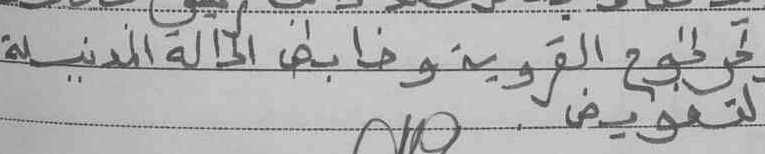 القروية وضابط الحالة المدنية
لتفويض